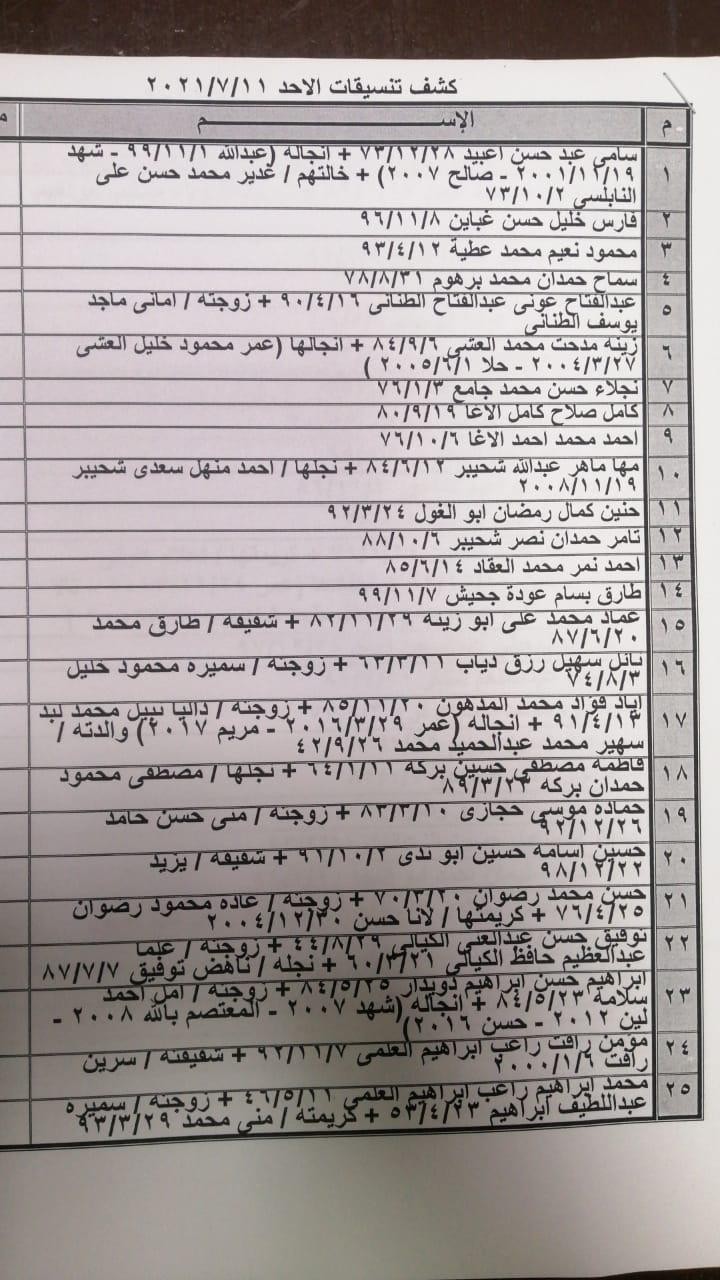 كشف تنسيقات الاحد ٢٠٢١/٧/١١
م الإســـــــم م
١ سامي عبد حسن اعبيد ٧٣/١٢/٢٨ + انجاله (عبدالله ٩٩/١١/١ - شهد
٢٠٠١/١٢/١٩ - صالح ٢٠٠٧) + خالتهم / غدير محمد حسن على
النابلسي ٧٣/١٠/٢
٢ فارس خليل حسن غباين ٩٦/١١/٨
٣ محمود نعيم محمد عطية ٩٣/٤/١٢
٤ سماح حمدان محمد برهوم ٧٨/٨/٣١
٥ عبدالفتاح عونى عبدالفتاح الطنانى ٩٠/٤/١٦ + زوجته / امانى ماجد
يوسف الطنانى
٦ زينه مدحت محمد العشي ٨٤/٩/٦ + انجالها (عمر محمود خليل العشى
٢٠٠٤/٣/٢٧ - حلا ٢٠٠٥/٦/١ )
٧ نجلاء حسن محمد جامع ٧٦/١/٣
٨ كامل صلاح كامل الاغا ٨٠/٩/١٩
٩ احمد محمد احمد الاغا ٧٦/١٠/٦
١٠ مها ماهر عبدالله شحيبر ٨٤/٦/١٢ + نجلها / احمد منهل سعدى شحيبر
٢٠٠٨/١١/١٩
١١ حنين كمال رمضان ابو الغول ٩٢/٣/٢٤
١٢ تامر حمدان نصر شحيبر ٨٨/١٠/٦
١٣ احمد نمر محمد العقاد ٨٥/٦/١٤
١٤ طارق بسام عودة جحيش ٩٩/١١/٧
١٥ عماد محمد على ابو زينه ٨٢/١١/٢٩ + شقيقه / طارق محمد
٨٧/٦/٢٠
١٦ سهيل رزق دياب ٦٣/٣/١١ + زوجته / سميره محمود خليل
٧٤/٨/٣
١٧ اياد فؤاد محمد المدهون ٨٥/١١/٢٠ + زوجته / داليا نبيل محمد لبد
٩١/٤/١٣ + انجاله (عمر ٢٠١٦/٣/٢٩ - مريم ٢٠١٧) والدته /
سهير محمد عبدالحميد محمد ٤٢/٩/٢٦
١٨ فاطمه مصطفى حسين بركه ٦٤/١/١١ + نجلها / مصطفى محمود
حمدان بركه ٨٩/٣/٢٣
١٩ حماده موسى حجازى ٨٣/٣/١٠ + زوجته / منى حسن حامد
٩٢/١٢/٢٦
٢٠ حسين اسامه حسين ابو ندى ٩١/١٠/٢ + شقيقه / يزيد
٩٨/١٢/٢٢
٢١ حسن محمد رضوان ٧٠/٣/٢٠ + زوجته / غاده محمود رضوان
٧٦/٤/٢٥ + كريمتها / لانا حسن ٢٠٠٤/١٢/٣٠
٢٢ توفيق حسن عبدالغنى الكيالى ٤٤/٨/٢٩ + زوجته / عليا
عبدالعظيم حافظ الكيالى ٦٠/٣/٢١ + نجله / ناهض توفيق ٨٧/٧/٧
٢٣ ابراهيم حسن ابراهيم دويدار ٨٤/٥/٢٥ + زوجته / امل احمد
سلامه ٨٤/٥/٢٣ + انجاله (شهد ٢٠٠٧ - المعتصم بالله ٢٠٠٨ -
لين ٢٠١٢ - حسن ٢٠١٦)
٢٤ مؤمن رافت راغب ابراهيم العلمى ٩٢/١١/٧ + شقيقته / سرين
رافت ٢٠٠٠/١/٦
٢٥ محمد ابراهيم راغب ابراهيم العلمى ٤٦/٥/١١ + زوجته / سميره
عبداللطيف ابراهيم ٥٣/٤/٢٣ + كريمته / منى محمد ٩٣/٣/٢٩